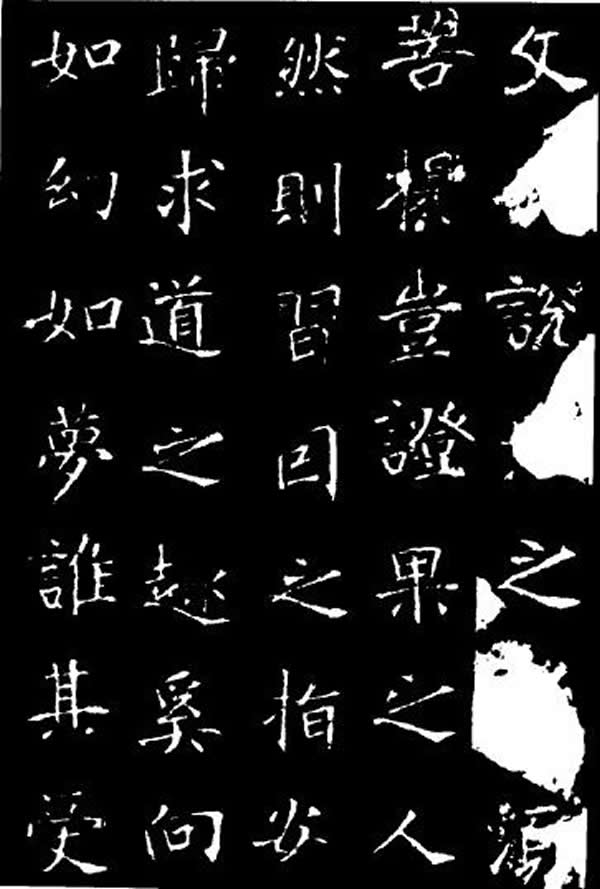 文說之
豈證果之人
然則習因之指安
歸求道之趣奚向
如幻如夢誰其受